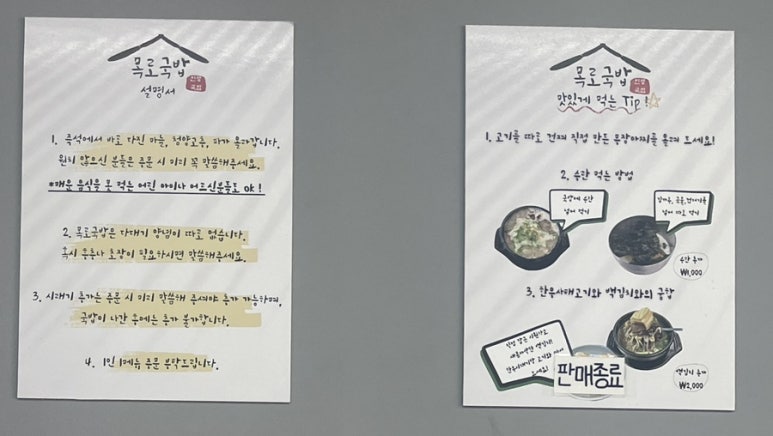 목로국밥
설명서
1. 즉석에서 바로 다진 마늘, 청양고추, 파가 올라갑니다.
원치 않으신 분들은 주문 시 미리 꼭 말씀해주세요.
*매운 음식을 못 먹는 어린 아이나 어르신분들도 ok!
2. 목로국밥은 다대기 양념이 따로 없습니다.
혹시 후추나 초장이 필요하시면 말씀해주세요.
3. 시래기 추가는 주문 시 미리 말씀해 주셔야 추가 가능하며,
국밥이 나간 후에는 추가 불가합니다.
4. 1인 1메뉴 주문 부탁드립니다.
목로국밥
맛있게 먹는 Tip!
1. 고기를 따로 건져 직접 만든 장아찌를 올려 드세요!
2. 수란 먹는 방법
국밥에 수란
넣어 먹기
넣어 따로 먹기
수란 추가
₩1,000
3. 한우사태고기와 백김치와의 궁합
판매종료
백김치 추가
₩2,000